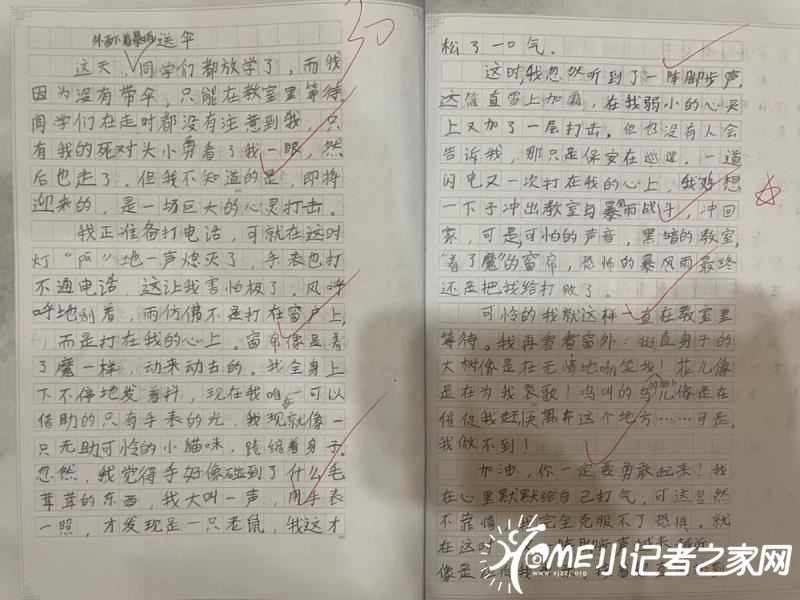 外面下着暴雨送伞
30
这天，同学们都放学了，而我
因为没有带伞，只能在教室里等待。
同学们在走时都没有注意到我，只
有我的死对头小勇看了我一眼，然
后也走了。但我不知道的是，即将
迎来的，是一场巨大的心灵打击。
我正准备打电话，可就在这时
灯“啊”地一声熄灭了，手表也打
不通电话，这让我害怕极了。风呼
呼地刮着，雨仿佛不是打在窗户上，
而是打在我的心上。窗帘像是着
了魔一样，动来动去的。我全身上
下不停地发着抖，现在我唯一可以
借助的只有手表的光，我现就像一
只无助可怜的小猫咪，蜷缩着身子。
忽然，我觉得手好像碰到了什么毛
茸茸的东西，我大叫一声，用手表
一照，才发现是一只老鼠，我这才
松了一口气。
这时，我忽然听到了一阵脚步声，
这简直雪上加霜，在我弱小的心灵
上又加了一层打击。但也没有人会
告诉我，那只是保安在巡逻。一道
闪电又一次打在我的心上，我好想
一下子冲出教室与暴风雨战斗，冲回
家，可是，可怕的声音，黑暗的教室，
“着了魔”的窗帘，恐怖的暴风雨最终
还是把我给打败了。
可怜的我就这样一直在教室里
等待。我再看看窗外：挺直身子的
大树像是在无情地嘲笑我！花儿像
是在为我哀歌！鸣叫的鸟儿像是在
催促我赶快离开这个地方……可是，
我做不到！
加油，你一定要勇敢起来！我
在心里默默给自己打气，可这显然
不靠谱，我完全克服不了恐惧。就
在这时
像是在
HOME小记者之家网
www.xjzzj.org